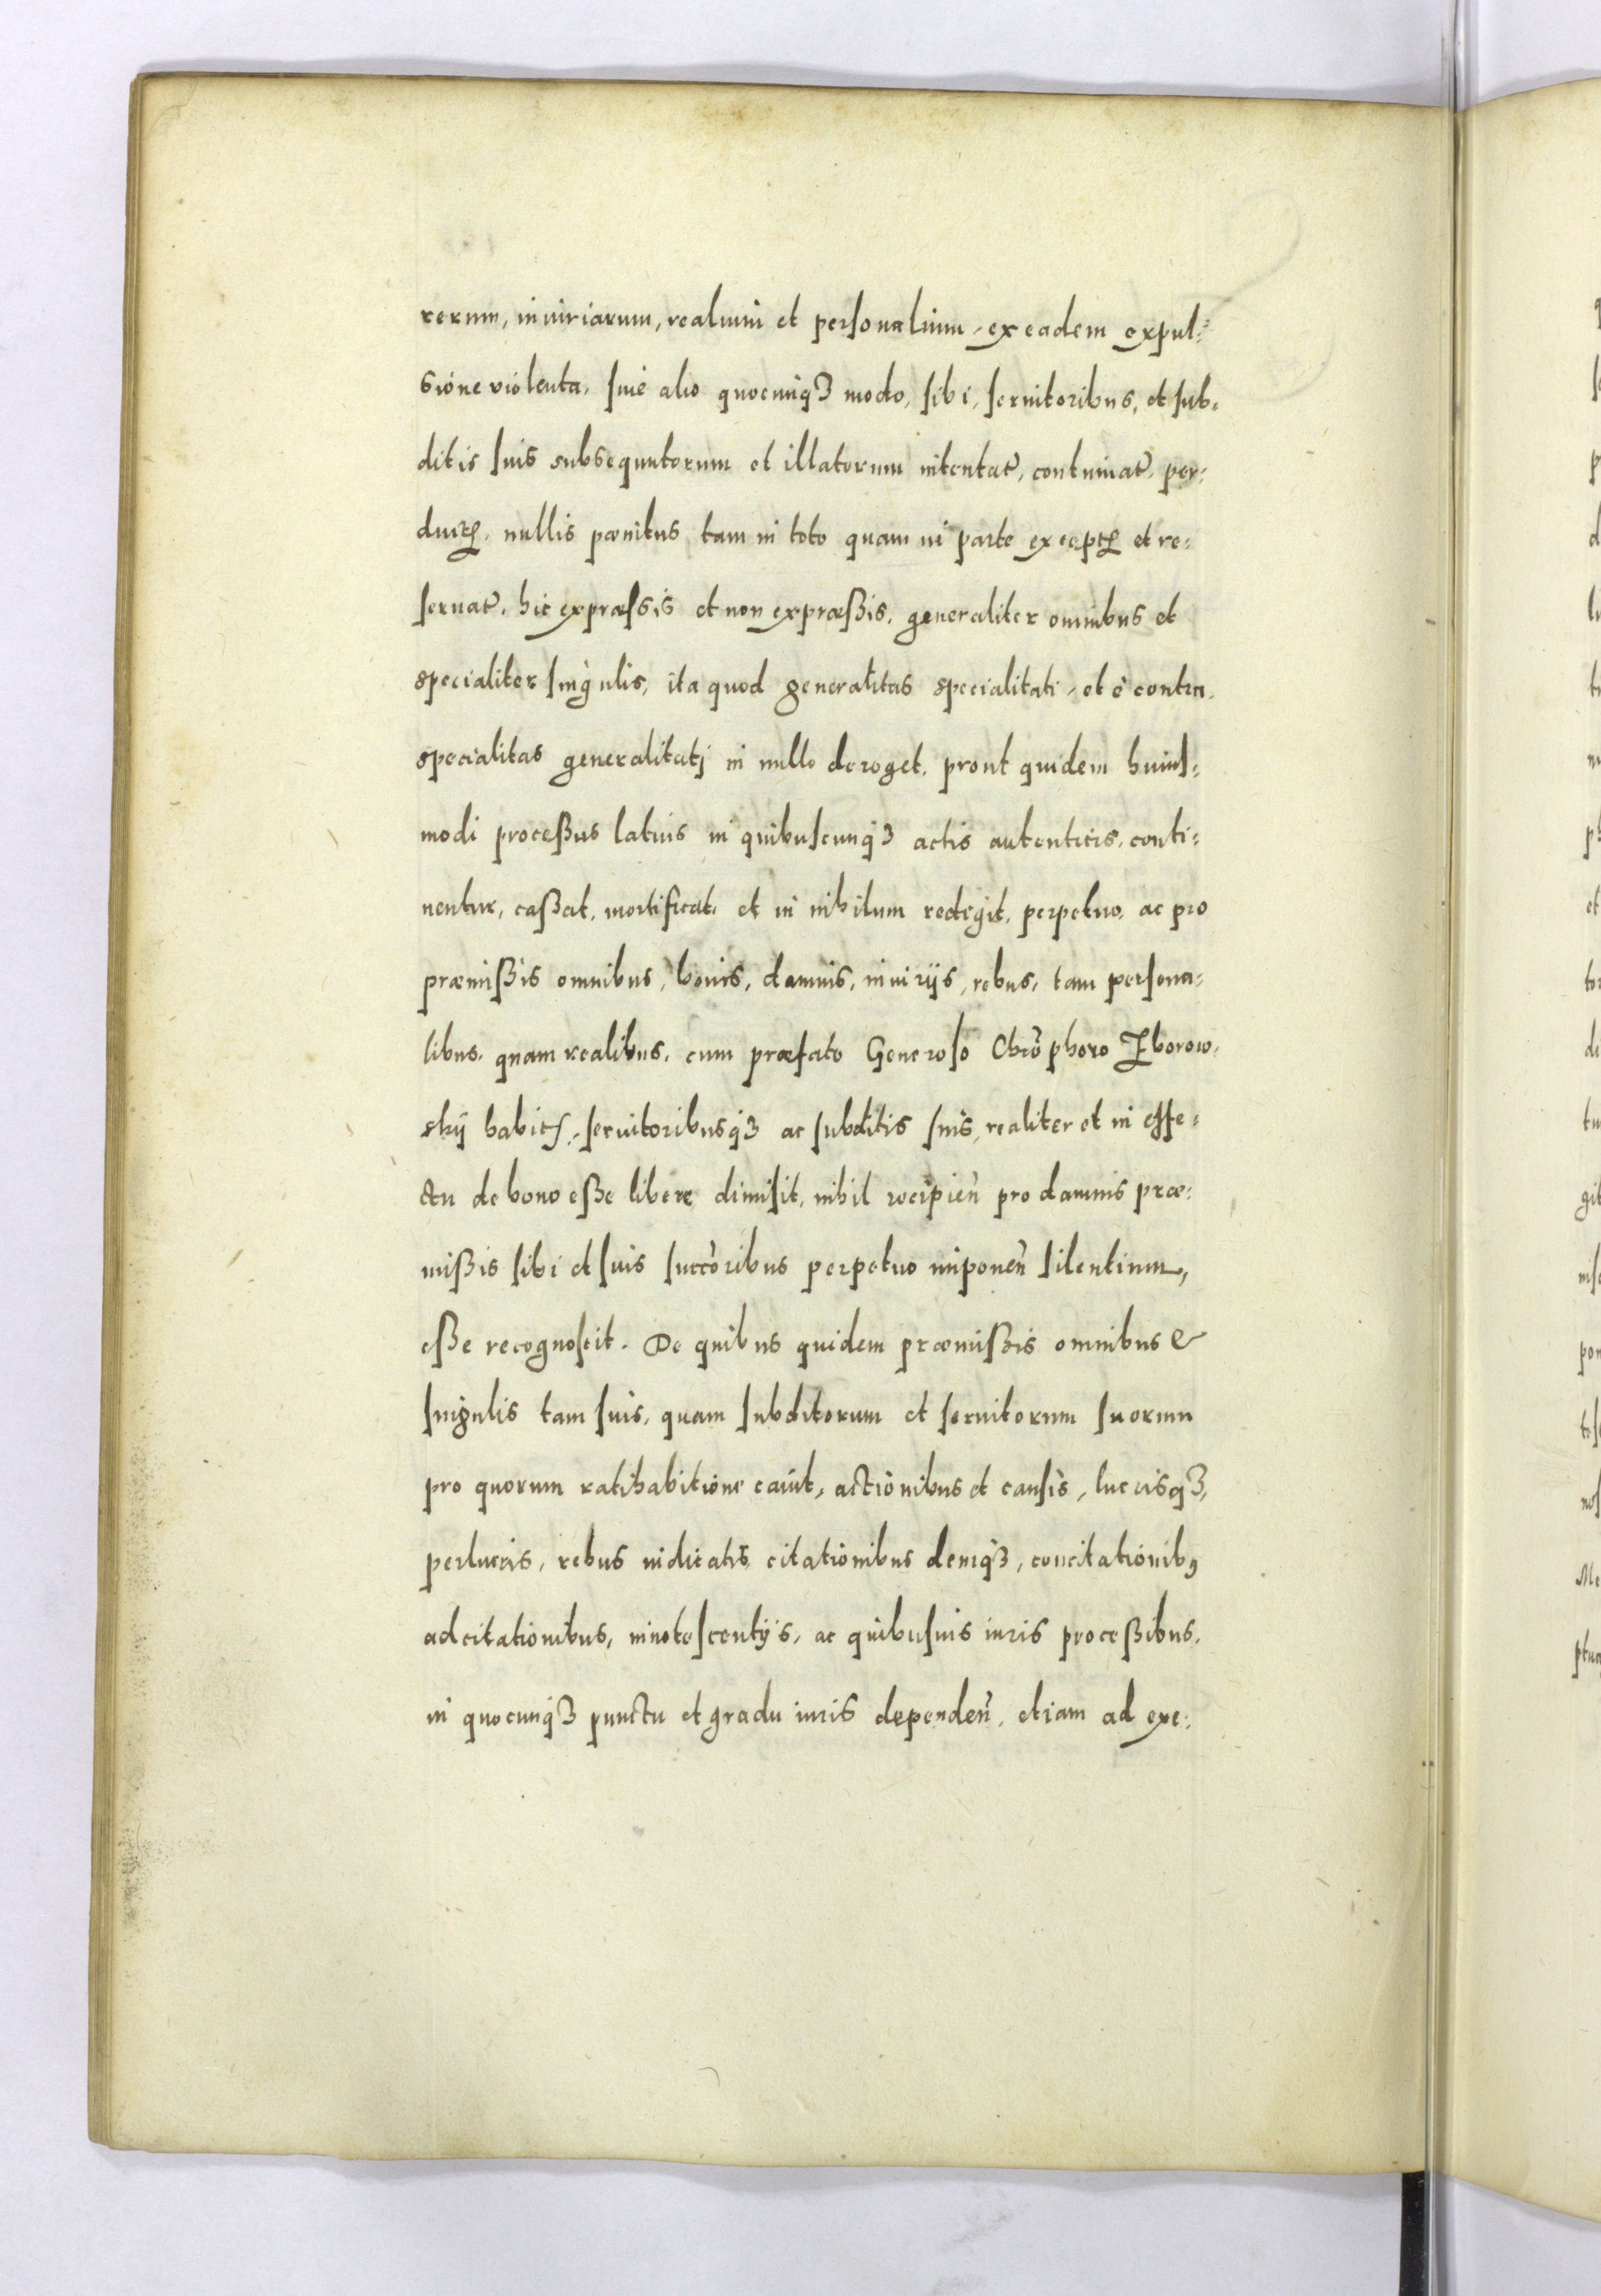 rerum, iniuriarum, realium et personalium, ex eadem expul⸗
sione violenta, siue alio quocunqꝫ modo, sibi, seruitoribus, et sub⸗
ditis suis subsequutorum et illatorum intentat̃, continuat̃, per⸗
duct̃, nullis pœnitus tam in toto quam in parte except̃ et re⸗
seruat̃, hic expræssis et non expræßis, generaliter omnibus et
specialiter singulis, ita quod generalitas specialitati, et è contra,
specialitas generalitatj in nullo deroget, prout quidem huius⸗
modi proceßus latius in quibuscunqꝫ actis autenticis, conti⸗
nentur, caßat, mortificat, et in nihilum redegit, perpetuo, ac pro
præmißis omnibus, bonis, damnis, iniurijs, rebus, tam persona⸗
libus, quam realibus, cum præfato Generoso Chr̃ophoro Zborow⸗
skij habit̃, seruitoribusqꝫ ac subditis suis, realiter et in effe⸗
ctu de bono eße libere dimisit, nihil recipieñ pro damnis præ⸗
mißis sibi et suis succ̃oribus perpetuo imponeñ silentium,
eße recognoscit. De quibus quidem præmißis omnibus &
singulis tam suis, quam subditorum et seruitorum suorum
pro quorum ratihabitione cauit, actionibus et causis, lucrisqꝫ,
perlucris, rebus iudicatis, citationibus deniqꝫ, concitationibꝰ
adcitationibus, innotescentijs, ac quibusuis iuris proceßibus,
in quocunqꝫ punctu et gradu iuris dependeñ, etiam ad exe⸗